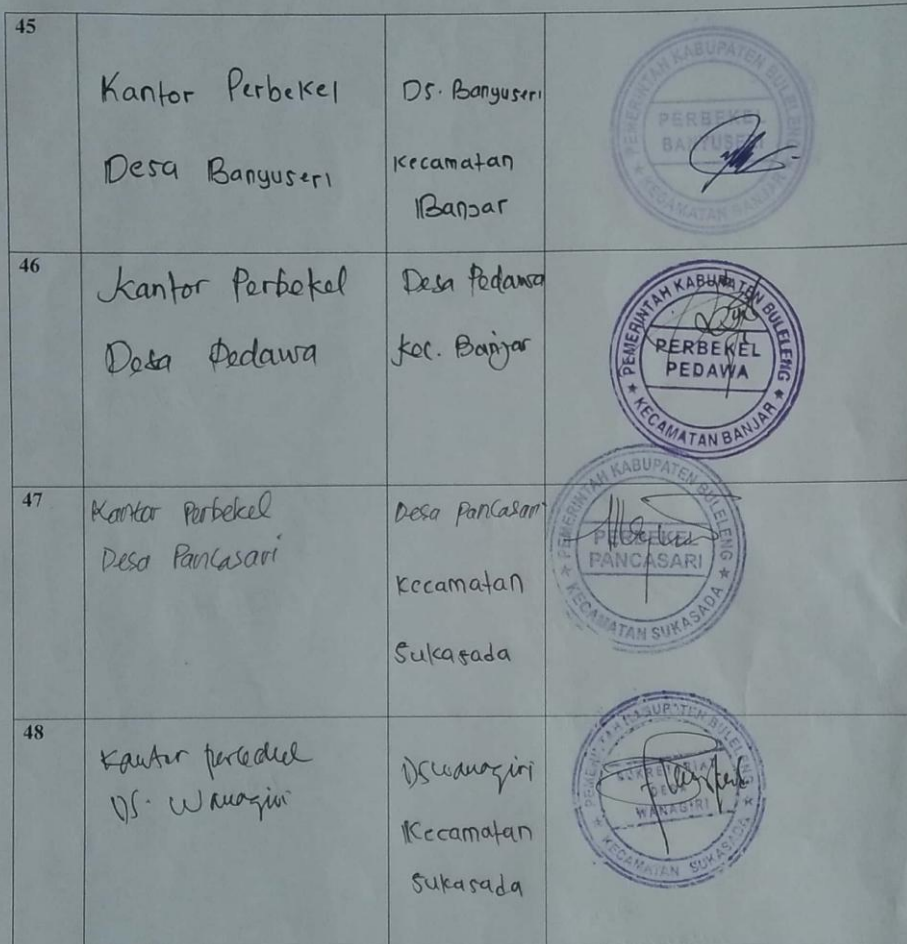 45
Kantor Perbekel
Desa Banyuseri
Ds. Banyuseri
Kecamatan
Banjar
PEMERINTAH KABUPATEN BULELENG
PERBEKEL
BANYUSERI
* KECAMATAN BANJAR *
46
Kantor Perbekel
Desa Pedawa
Desa Pedawa
Kec. Banjar
PEMERINTAH KABUPATEN BULELENG
PERBEKEL
PEDAWA
* KECAMATAN BANJAR *
47
Kantor Perbekel
Desa Pancasari
Desa Pancasari
Kecamatan
Sukasada
PEMERINTAH KABUPATEN BULELENG
PERBEKEL
PANCASARI
* KECAMATAN SUKASADA *
48
Kantor
Ds. Wanagiri
Ds Wanagiri
Kecamatan
Sukasada
PEMERINTAH KABUPATEN BULELENG
SEKRETARIAT
DESA
WANAGIRI
* KECAMATAN SUKASADA *